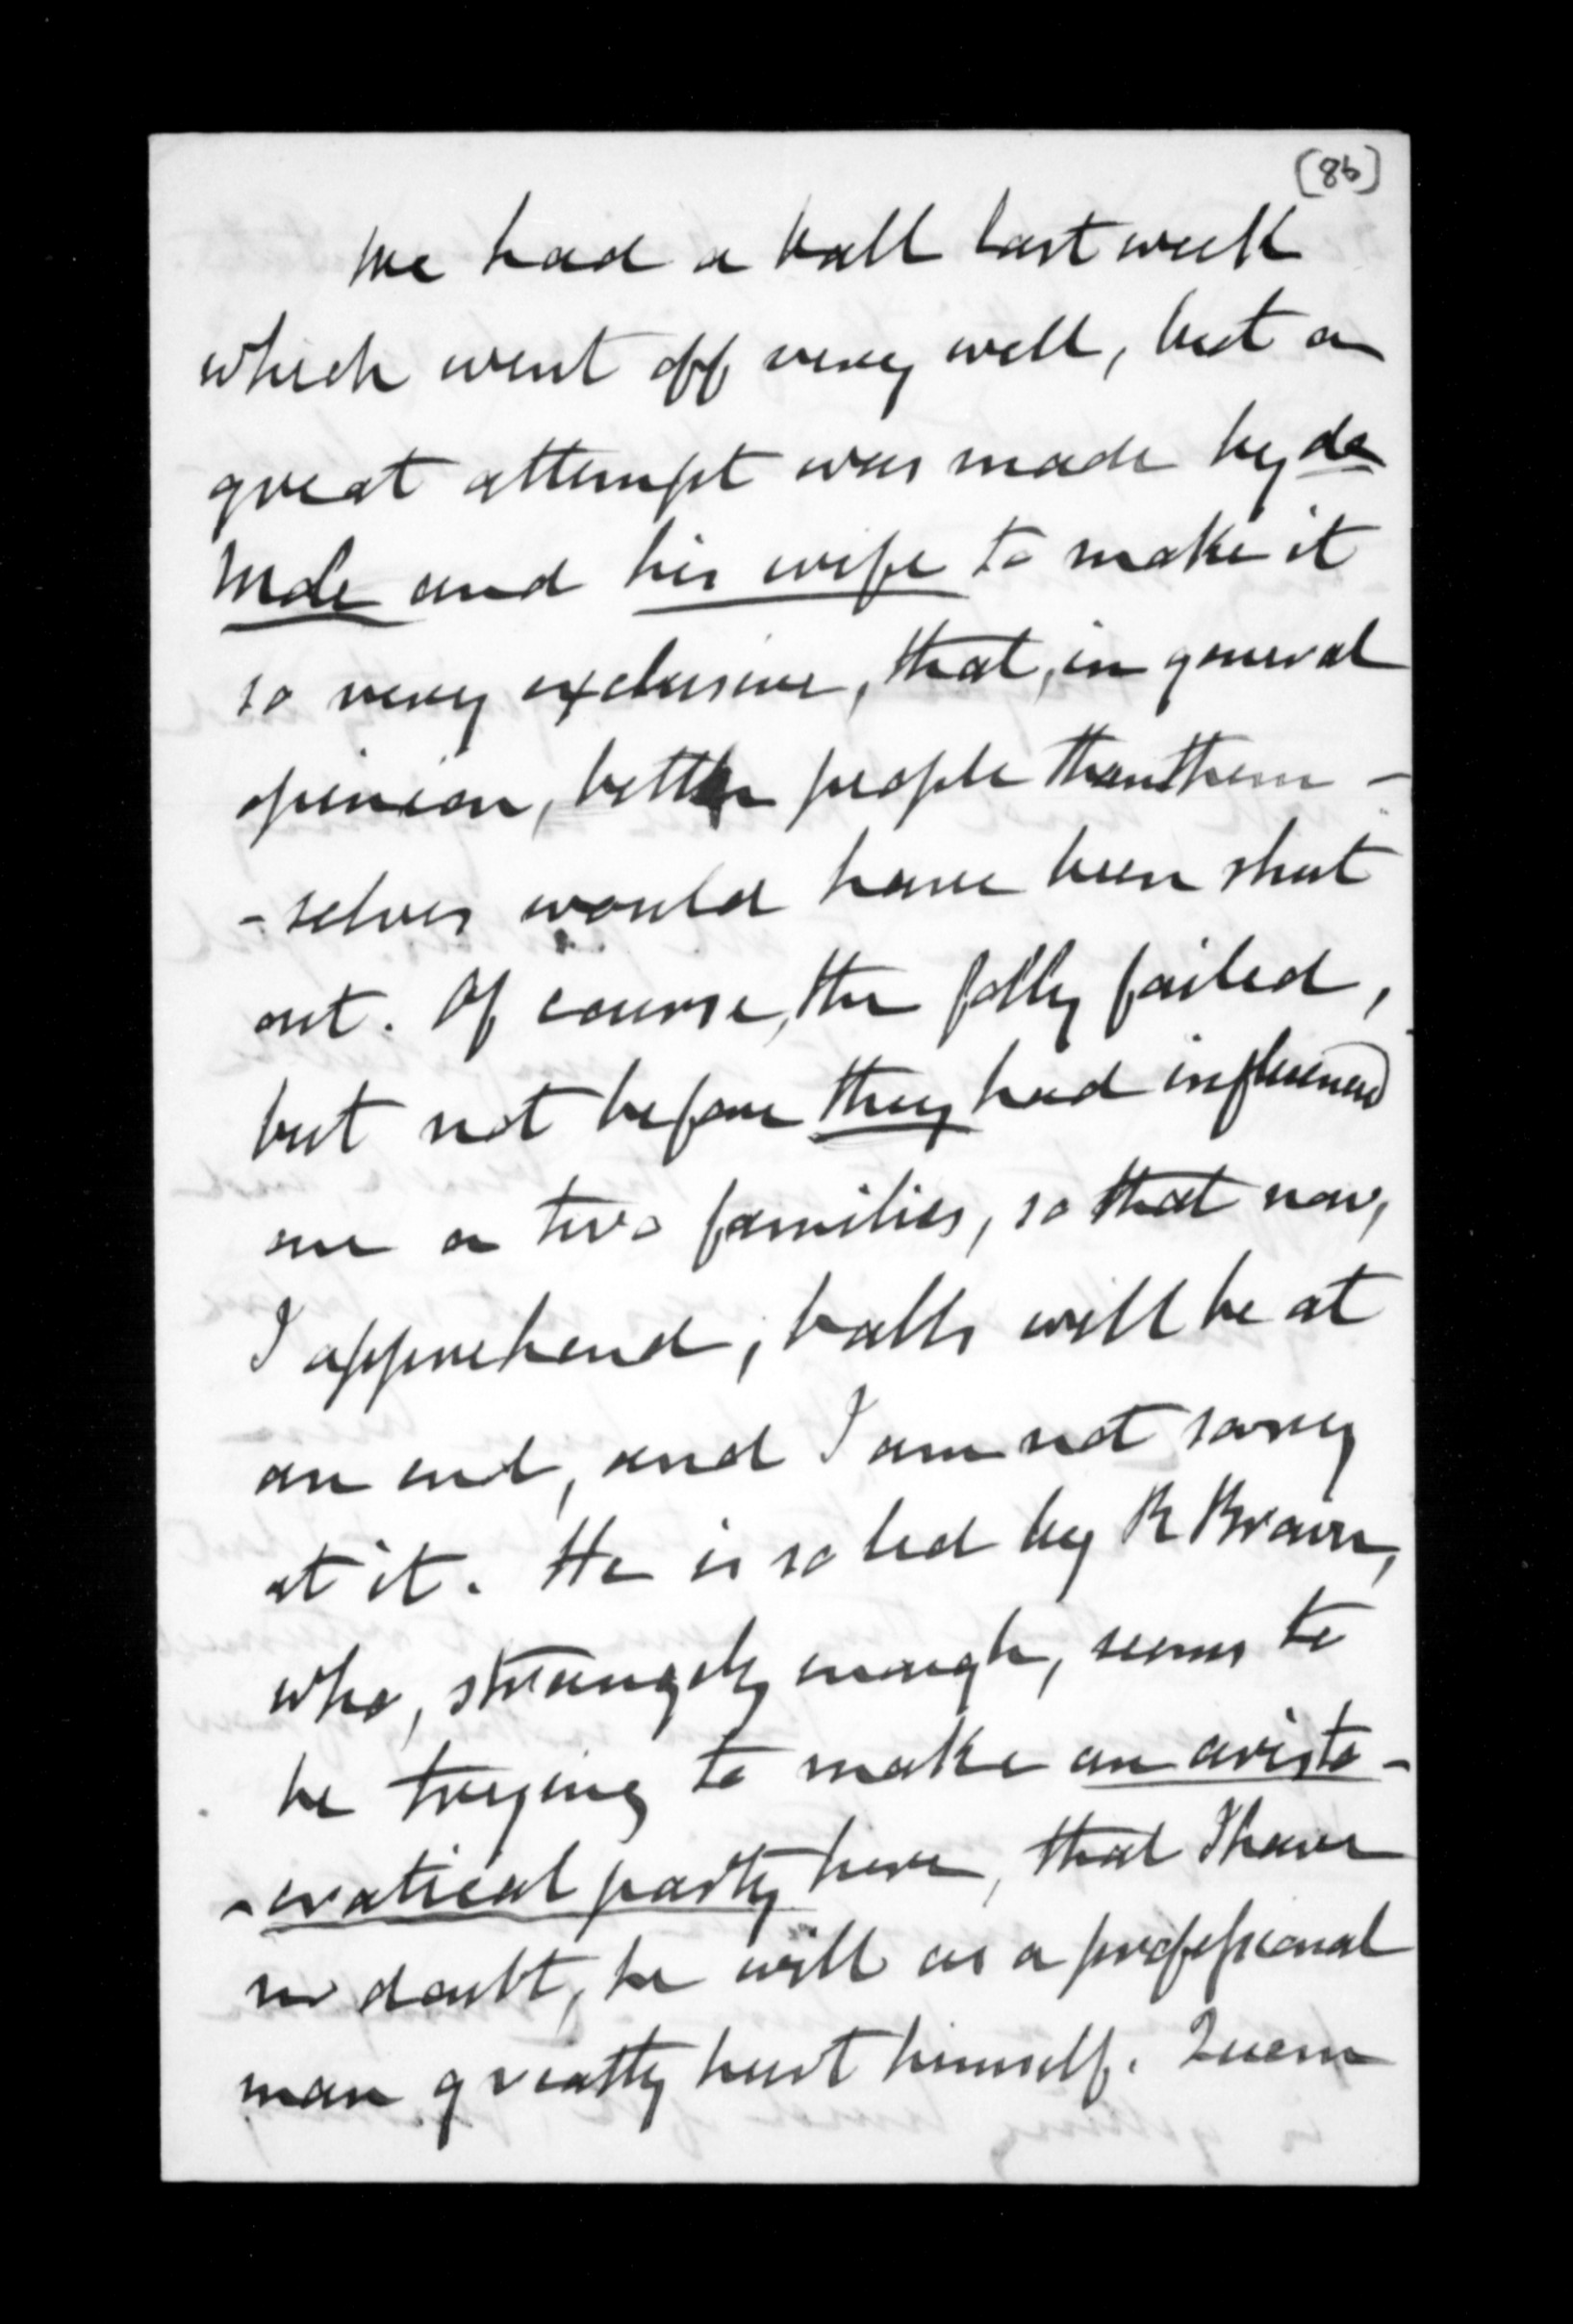 (8b)
We had a ball last week
which went off very well, but a
great attempt was made by de
Mole and his wife to make it
so very exclusive, that, in general
opinion, better people than them -
- selves would have been shut
out. Of course, the folly failed,
but not before they had influenced
one or two families, so that now,
I apprehend, balls will be at
an end, and I am not sorry
at it. He is so led by R Brown,
who, strangely enough, seems to
be trying to make an aristo -
- cratical party here, that I have
no doubt, he will as a professional
man greatly hurt himself. Quem